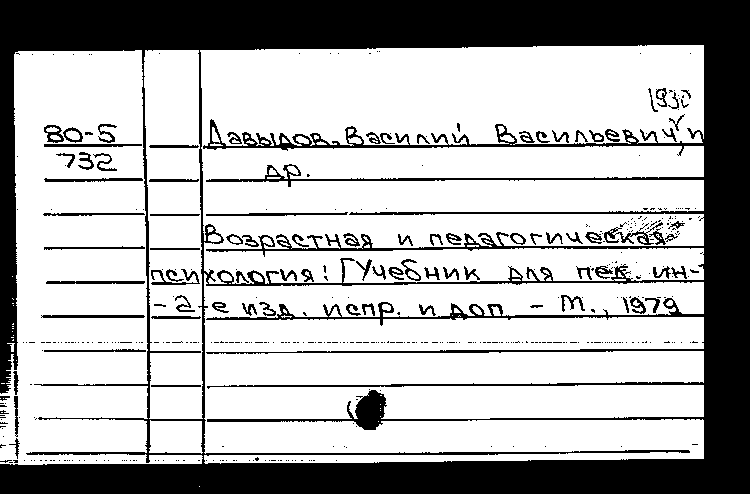 1930
80-5 Давыдов, Василий Васильевич, и
732 др.
Возрастная и педагогическая
психология: [Учебник для пед. ин-
- 2-е изд. испр. и доп. - М., 1979